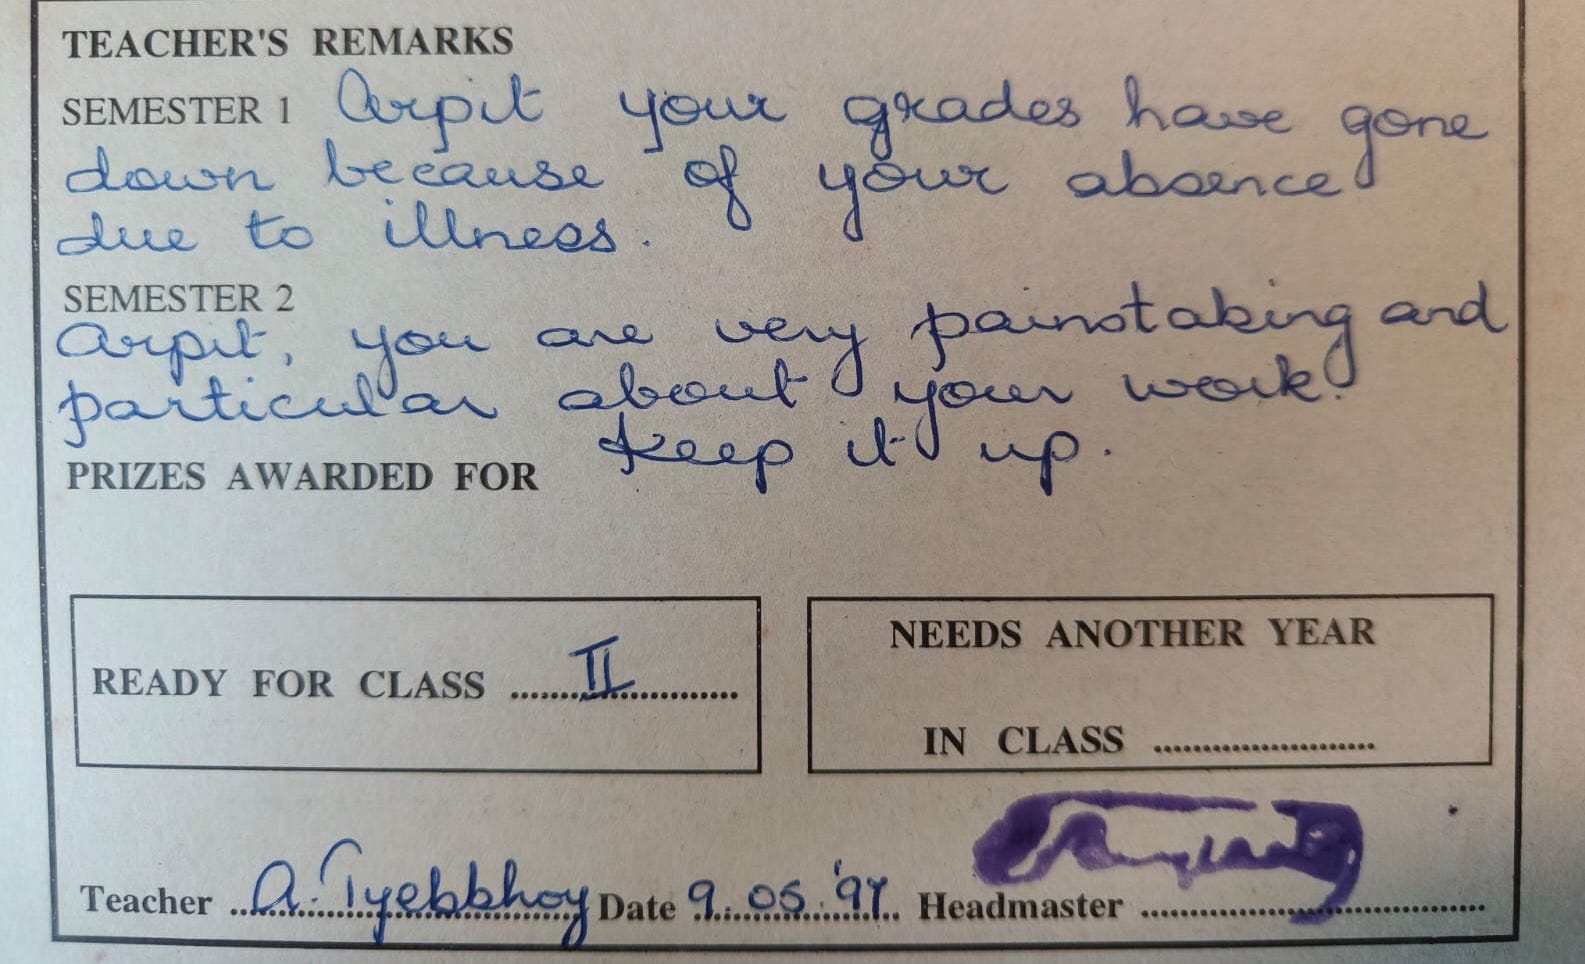 TEACHER'S REMARKS
SEMESTER 1 Arpit your grades have gone
down because of your absence
due to illness.
SEMESTER 2
Arpit, you are very painstaking and
particular about your work.
Keep it up.
PRIZES AWARDED FOR
READY FOR CLASS ........II............
NEEDS ANOTHER YEAR
IN CLASS ........................
Teacher A. Tyebbhoy Date 9.05.'97. Headmaster ........................